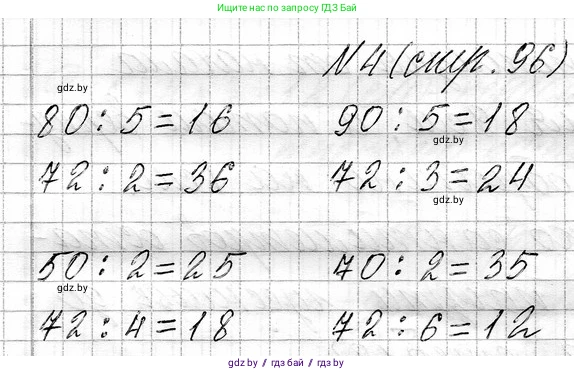 Ищите нас по запросу ГДЗ Бай
№4 (стр. 96)
gdz.by
80 : 5 = 16 90 : 5 = 18
gdz.by
72 : 2 = 36 72 : 3 = 24
gdz.by
50 : 2 = 25 70 : 2 = 35
gdz.by
72 : 4 = 18 72 : 6 = 12
gdz.by // гдз бай // гдз by